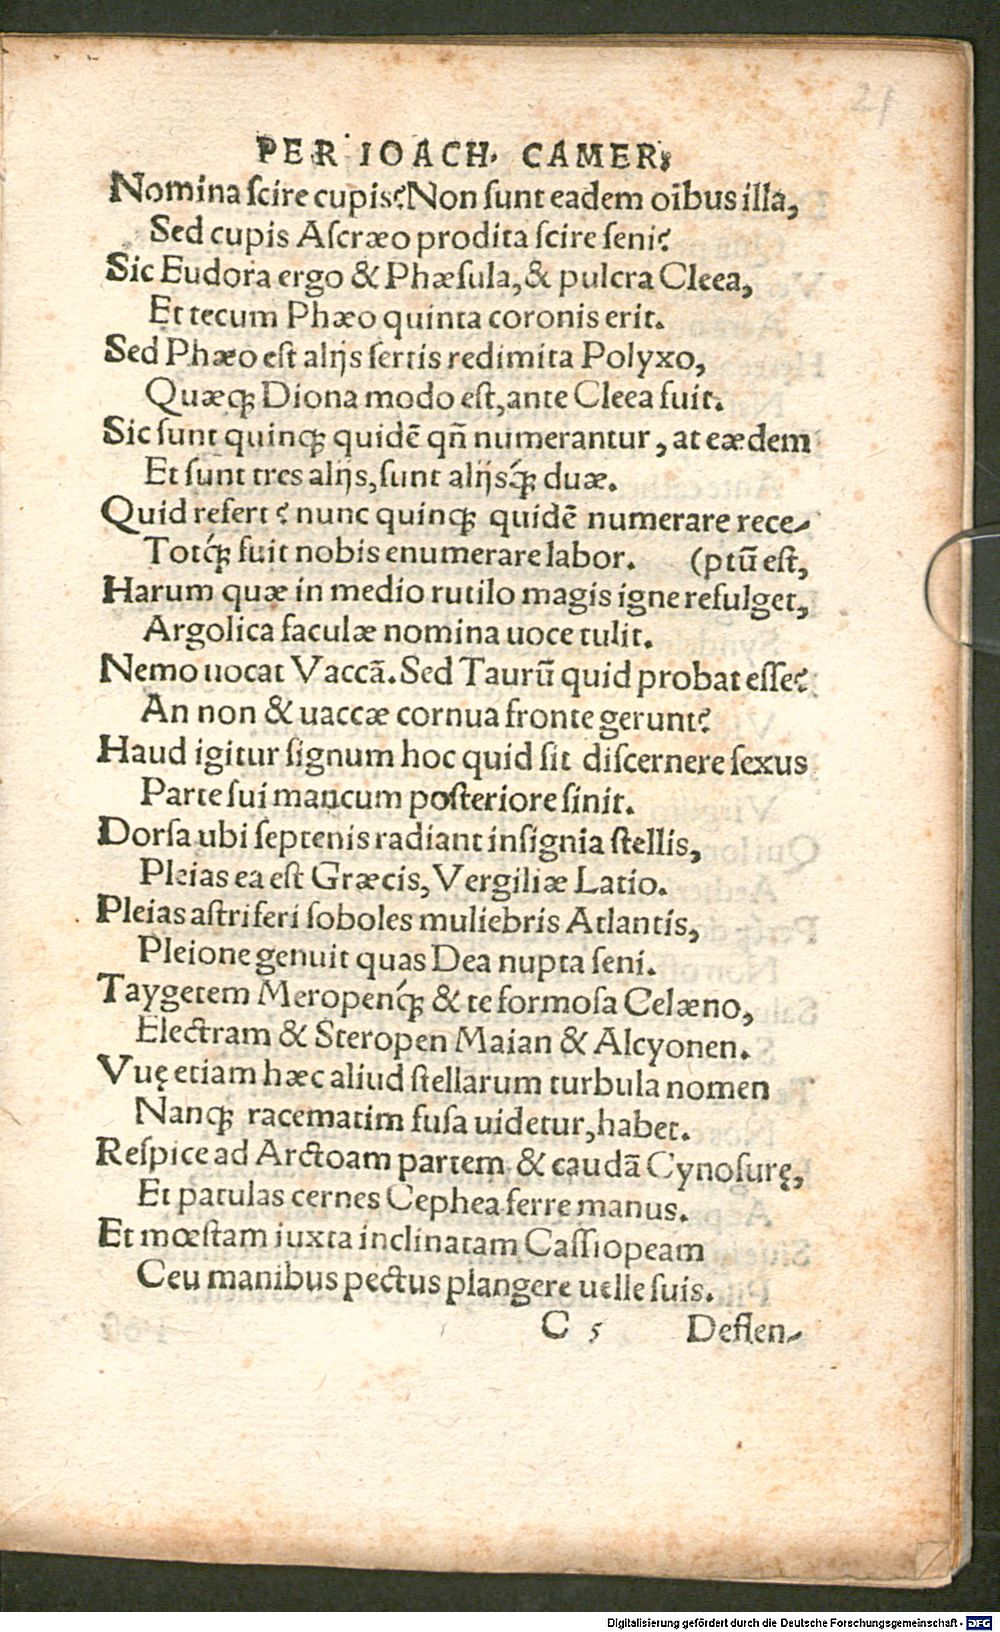 21
PER IOACH. CAMER.
Nomina ſcire cupis? Non ſunt eadem oĩbus illa,
Sed cupis Aſcræo prodita ſcire ſeni?
Sic Eudora ergo & Phæſula, & pulcra Cleea,
Et tecum Phæo quinta coronis erit.
Sed Phæo eſt alijs ſertis redimita Polyxo,
Quæq; Diona modo eſt, ante Cleea fuit.
Sic ſunt quinq; quidẽ qñ numerantur, at eædem
Et ſunt tres alijs, ſunt alijsq́; duæ.
Quid refert? nunc quinq; quidẽ numerare rece-
Totq́; fuit nobis enumerare labor. (ptũ eſt,
Harum quæ in medio rutilo magis igne refulget,
Argolica faculæ nomina uoce tulit.
Nemo uocat Vaccã. Sed Taurũ quid probat eſſe?
An non & uaccæ cornua fronte gerunt?
Haud igitur ſignum hoc quid ſit diſcernere ſexus
Parte ſui mancum poſteriore ſinit.
Dorſa ubi ſeptenis radiant inſignia ſtellis,
Pleias ea eſt Græcis, Vergiliæ Latio.
Pleias aſtriferi ſoboles muliebris Atlantis,
Pleione genuit quas Dea nupta ſeni.
Taygetem Meropenq́; & te formoſa Celæno,
Electram & Steropen Maian & Alcyonen.
Vuę etiam hæc aliud ſtellarum turbula nomen
Nanq; racematim fuſa uidetur, habet.
Reſpice ad Arctoam partem & caudã Cynoſurę,
Et patulas cernes Cephea ferre manus.
Et mœſtam iuxta inclinatam Caſſiopeam
Ceu manibus pectus plangere uelle ſuis.
C 5 Deflen-
Digitalisierung gefördert durch die Deutsche Forschungsgemeinschaft - DFG